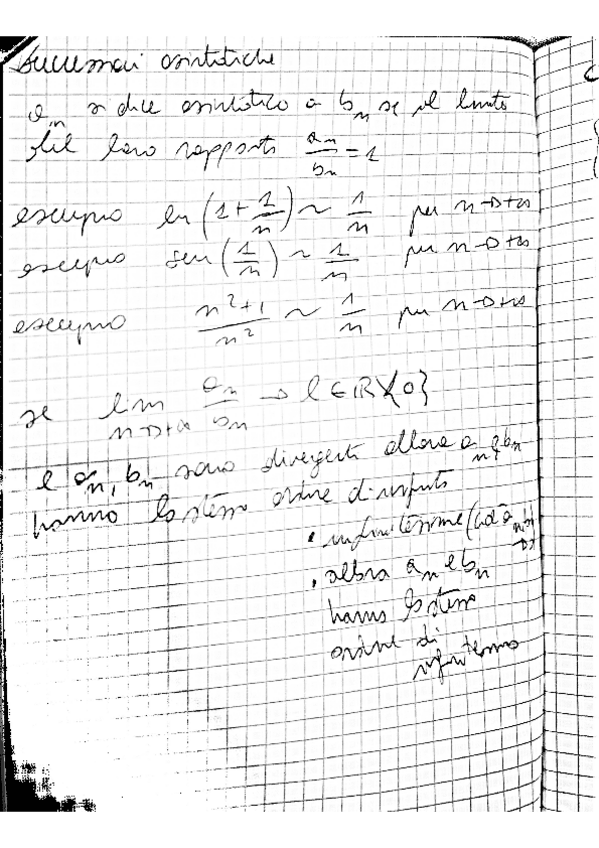 Successioni asintotiche
a_n si dice asintotico a b_n se il limite
del loro rapporto a_n/b_n = 1
esempio ln(1+1/n) ~ 1/n per n→+∞
esempio sen(1/n) ~ 1/n per n→+∞
esempio n²+1/n² ~ 1/n per n→+∞
se lim n→+∞ a_n/b_n → l ∈ ℝ\{0}
e a_n, b_n sono divergenti allora a_n e b_n
hanno lo stesso ordine di infinito
• infinitesime (cioè a_n
• allora a_n e b_n
hanno lo stesso
ordine di
infinitesimo